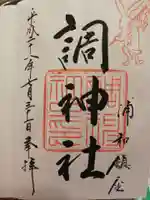 浦和鎮座
調神社
平成二十八年十月三十一日奉拝